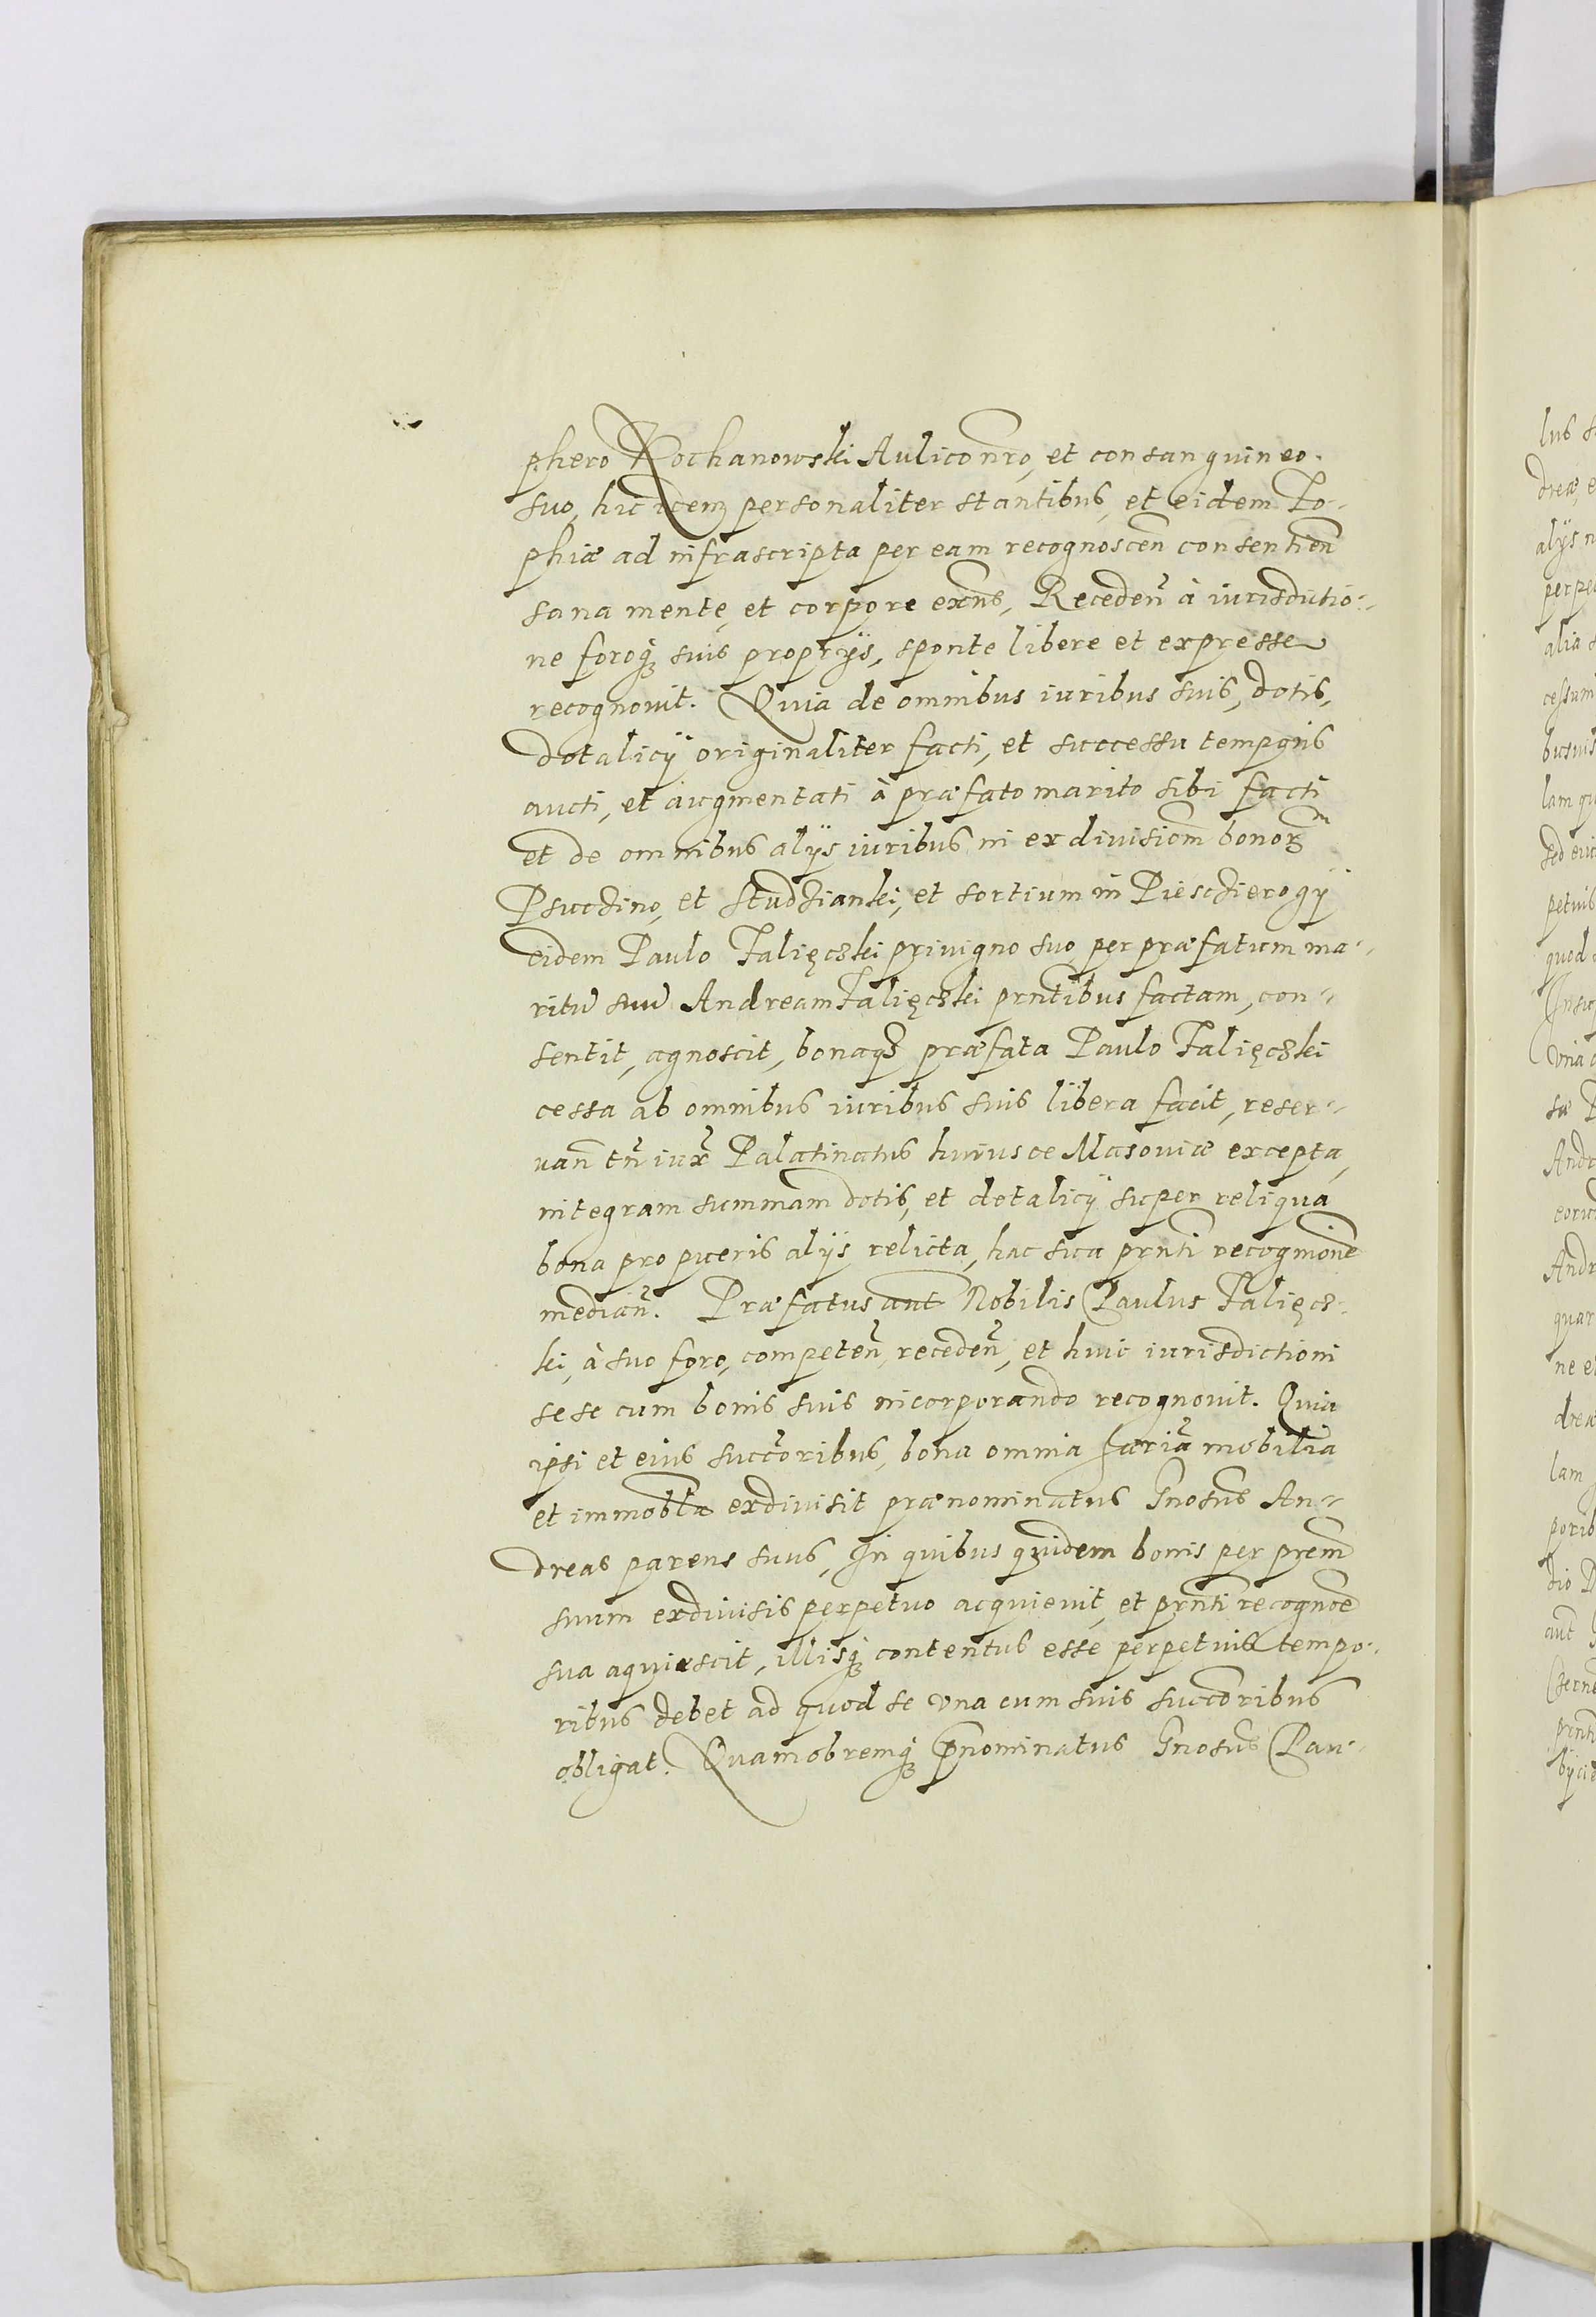 phero Kochanowski Aulico nr̃o, et consanguineo
suo, hic idem personaliter stantibus, et eidem Zo-
phiæ ad infrascripta per eam recognoscen̄ consentien̄
sana mente, et corpore exn̄s, Receden̄ à iurisdictio-
ne foroq; suis proprijs, sponte libere et expresse
recognovit. Quia de omnibus iuribus suis, dotis,
dotalicÿ originaliter facti, et successu tempõris
aucti, et augmentati à præfato marito sibi facti
et de omnibus alÿs iuribus in exdivisiom̄ bonorm
Psucdino, et Studzianki, et sortium in Piesczierogÿ
eidem Paulo Zalięczki privigno suo, per præfatum ma-
ritū suū Andream Zalięczki prn̄tibus factam, con-
sentit, agnoscit, bonaq; præfata Paulo Zalięczki
cessa ab omnibus iuribus suis libera facit, reser-
van̄ tn̄ iux̃ Palatinatus huiusce Masoviæ excepta,
integram summam dotis, et dotalicÿ super reliqua
bona pro pueris alÿs relicta, hac sua prn̄ti recognione
median̄. Præfatus aut Nobilis Paulus Zalięcz-
ki, à suo foro, competen̄, receden̄, et huic iurisdictioni
sese cum bonis suis incorporando recognovit. Quia
ipsi et eius succõribus, bona omnia fariã mobilia
et immobl̄a exdivisit prænominatus Gnosus An-
dreas parens suus, In quibus quidem bonis per prem̄
suum exdivisis perpetuo acquievit, et prn̄ti recognõe
sua aquiescit, illisq; contentus esse perpetuis tempo-
ribus debet ad quod se una cum suis succõribus
obligat. Quamobremq; p̄nominatus Gnosus Pau-